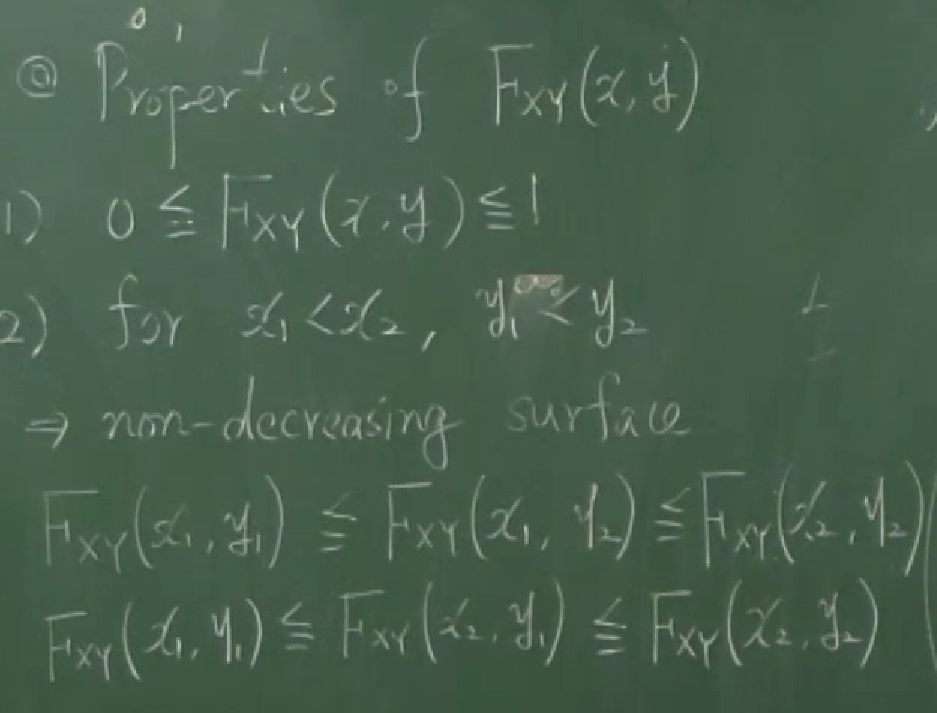 ◎ Properties of F_XY(x, y)
1) 0 ≦ F_XY(x, y) ≦ 1
2) for x₁ < x₂, y₁ < y₂
⇒ non-decreasing surface
F_XY(x₁, y₁) ≦ F_XY(x₁, y₂) ≦ F_XY(x₂, y₂)
F_XY(x₁, y₁) ≦ F_XY(x₂, y₁) ≦ F_XY(x₂, y₂)